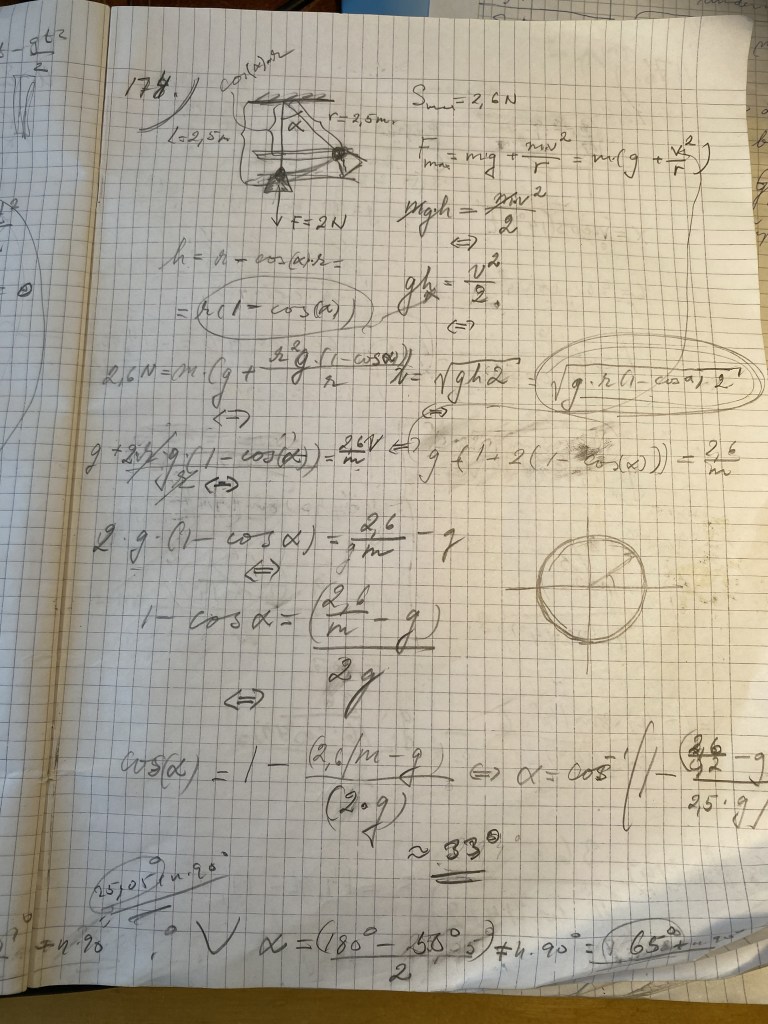 178.
cos(α)·r
L=2,5m
α
r=2,5m.
F=2N
S_max = 2,6N
F_max = mg + mv²/r = m(g + v²/r)
mgh = mv²/2
⇔
gh = v²/2
⇔
h = r - cos(α)·r =
= r(1 - cos(α))
2,6N = m·(g + r2g·(1-cosα)/r)
v = √(gh·2) = √(g·r(1-cosα)·2)
⇔
g + 2·r·g·(1-cos(α))/r = 2,6N/m ⇔ g·(1+2(1-cos(α))) = 2,6/m
⇔
2·g·(1-cosα) = 2,6/m - g
⇔
1 - cosα = (2,6/m - g)/2g
⇔
cos(α) = 1 - (2,6/m - g)/(2·g) ⇔ α = cos⁻¹(1 - (2,6/0,2 - g)/2,5·g)
≈ 33°
+n·90°
+n·90° ∨ α = (180° - )/2 +n·90° = 65°